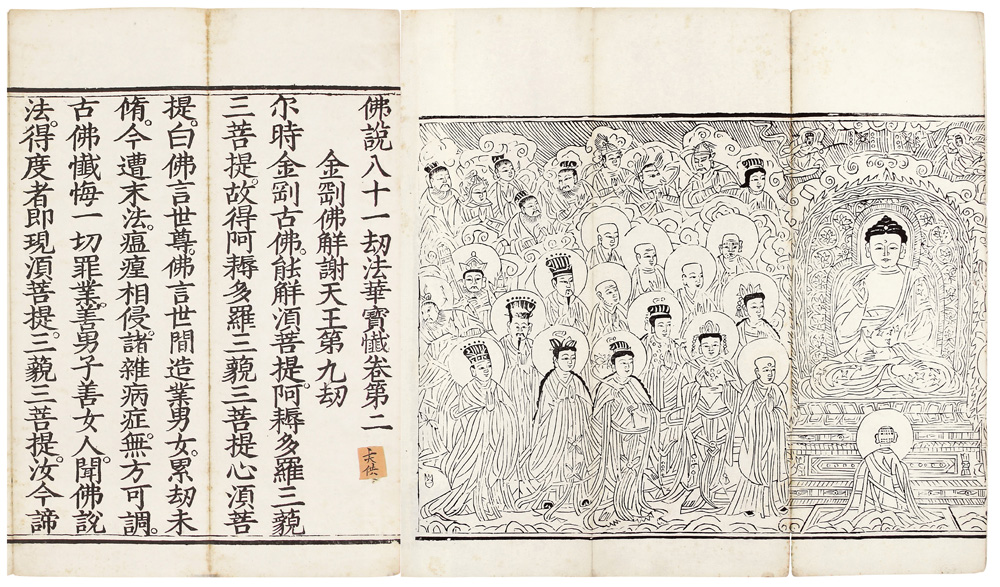 佛說八十一劫法華寶懺卷第二
金剛佛解謝天王第九劫
尒時金剛古佛。能解湏菩提。阿耨多羅三藐
三菩提。故得阿耨多羅三藐三菩提心湏菩
提。白佛言世尊。佛言世間造業男女。累劫未
脩。今遭末法。瘟㾮相侵。諸雜病症。無方可調。
古佛懺悔一切罪業。善男子善女人。聞佛說
法。得度者即現湏菩提。三藐三菩提。汝今諦